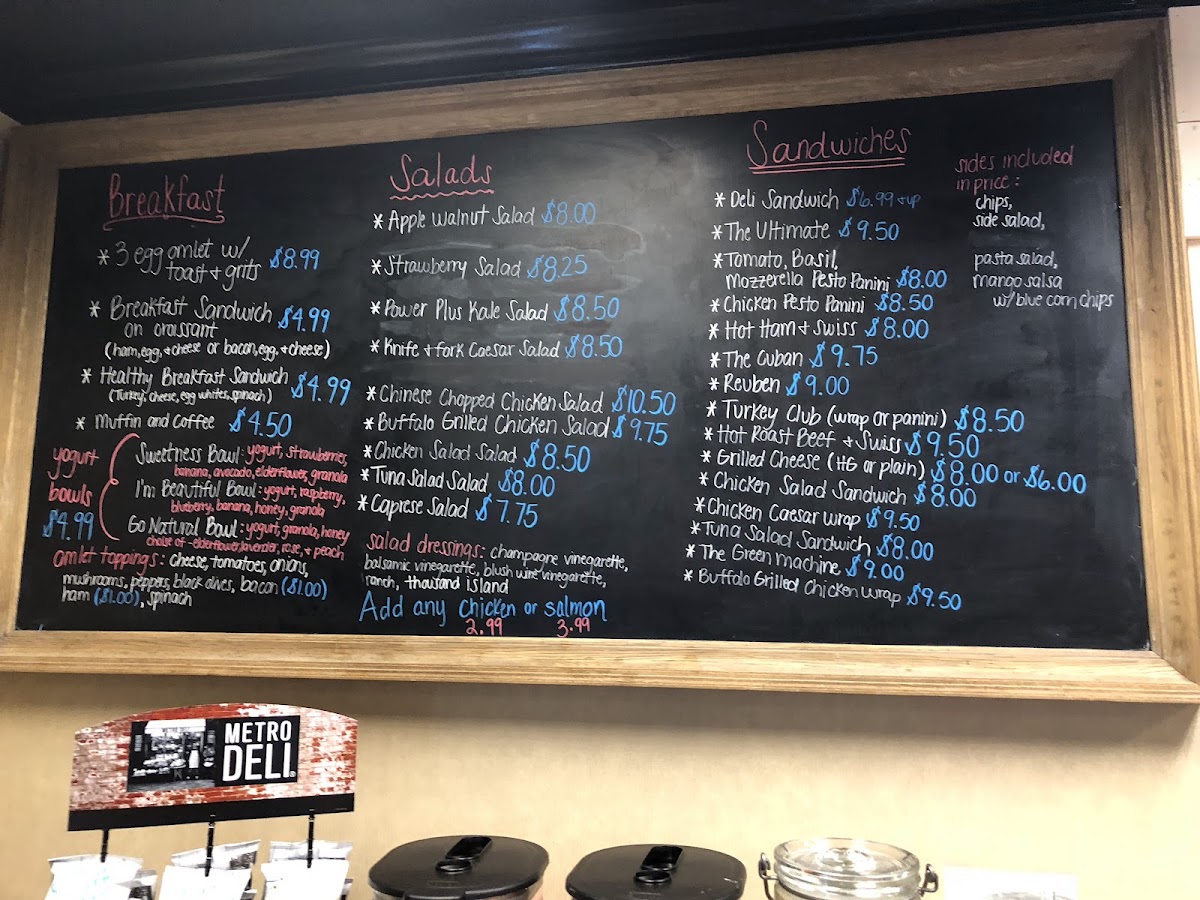 Breakfast
* 3 egg omlet w/
toast + grits $8.99
* Breakfast Sandwich $4.99
on croissant
(ham, egg, & cheese or bacon, egg, & cheese)
* Healthy Breakfast Sandwich $4.99
(Turkey, cheese, egg whites, spinach)
* Muffin and Coffee $4.50
yogurt
bowls
$4.99
Sweetness Bowl: yogurt, strawberries,
banana, avocado, elderflower, granola
I'm Beautiful Bowl: yogurt, raspberry,
blueberry, banana, honey, granola
Go Natural Bowl: yogurt, granola, honey
choise of - elderflower, lavender, rose, + peach
omlet toppings: cheese, tomatoes, onions,
mushrooms, peppers, black olives, bacon ($1.00)
ham ($1.00), spinach
Salads
* Apple Walnut Salad $8.00
* Strawberry Salad $8.25
* Power Plus Kale Salad $8.50
* Knife + fork Caesar Salad $8.50
* Chinese Chopped Chicken Salad $10.50
* Buffalo Grilled Chicken Salad $9.75
* Chicken Salad Salad $8.50
* Tuna Salad Salad $8.00
* Caprese Salad $7.75
salad dressings: champagne vinegarette,
balsamic vinegarette, blush wine vinegarette,
ranch, thousand island
Add any chicken or salmon
2.99 3.99
Sandwiches
* Deli Sandwich $6.99 + up
* The Ultimate $9.50
* Tomato, Basil,
Mozzerella Pesto Panini $8.00
* Chicken Pesto Panini $8.50
* Hot Ham + Swiss $8.00
* The Cuban $9.75
* Reuben $9.00
* Turkey Club (wrap or panini) $8.50
* Hot Roast Beef + Swiss $9.50
* Grilled Cheese (HG or plain) $8.00 or $6.00
* Chicken Salad Sandwich $8.00
* Chicken Caesar wrap $9.50
* Tuna Salad Sandwich $8.00
* The Green machine $9.00
* Buffalo Grilled Chicken wrap $9.50
sides included
in price:
chips,
side salad,
pasta salad,
mango salsa
w/ blue corn chips
METRO
DELI